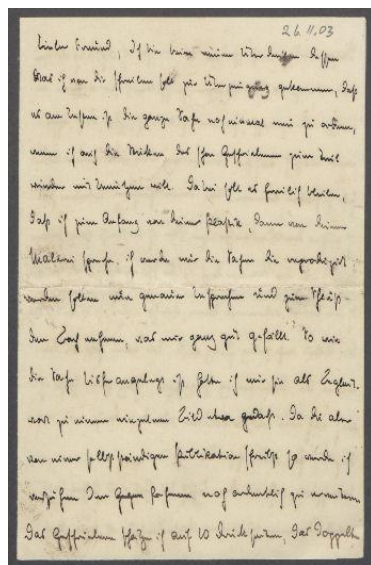 26.11.03
Lieber Freund, Ich bin beim wieder überdenken dessen
was ich von dir schreiben soll zur Überzeugung gekommen, daß
es am besten ist die ganze Sache noch einmal neu zu ordnen,
wenn ich auch die des schon Geschriebenen zum Teil
wieder mit benützen will. Dabei soll es freilich bleiben,
daß ich zum Anfang von deiner Plastik, dann von deiner
Malerei spreche, ich werde mir die Sachen die reproduziert
werden sollen nun genauer besprechen und zum Schluß
den nehmen, was mir ganz gut gefällt. So wie
die Sache bisher angelegt ist hatte ich mir sie als Begleit-
wort zu einem einzelnen Bild gedacht. Da du aber
von einer selbstständigen Publikation schreibst so werde ich
versuchen den ganzen noch ordentlich zu
Das Geschriebene schätze ich auf 10 Druckseiten, das Doppelte